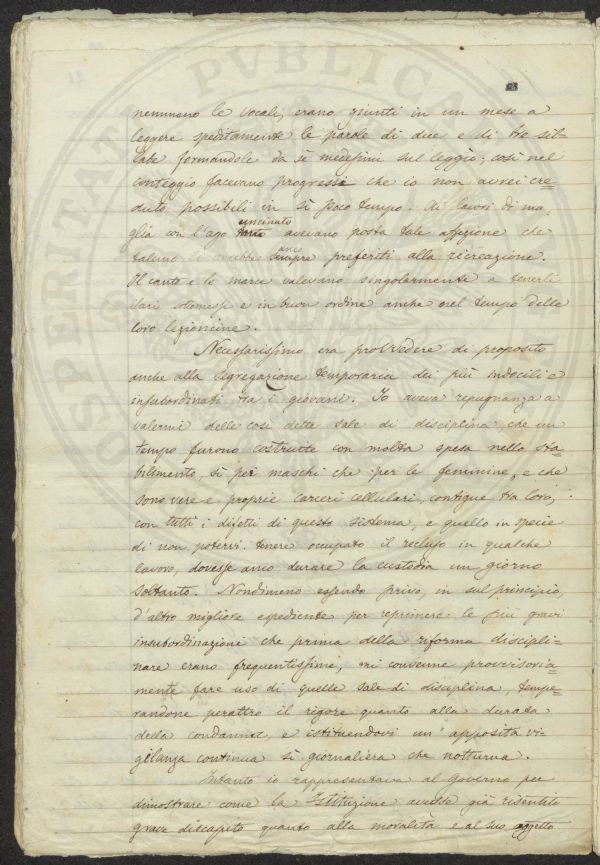 nemmeno le vocali, erano giunti in un mese a
leggere speditamente le parole di due e di tre sil-
labe formandole da sè medesimi sul leggio; così nel
conteggio facevano progressi che io non avrei cre-
duto possibili in sì poco tempo. Ai lavori di ma-
uncinato
glia con l'ago avevano posta tale affezione che
anco
taluno li avrebbe sempre preferiti alla ricreazione.
Il canto e le marce valevano singolarmente a tenerli
ilari sottomessi e in buon ordine anche nel tempo delle
loro lezioncine.
Necessarissimo era provvedere di proposito
anche alla segregazione temporaria dei più indocili e
insubordinati tra i giovani. Io aveva repugnanza a
valermi delle così dette sale di disciplina, che un
tempo furono costruite con molta spesa nello sta-
bilimento, sì pei maschi che per le femmine, e che
sono vere e proprie carceri cellulari, contigue tra loro,
con tutti i difetti di questo sistema, e quello in specie
di non potervi tenere occupato il recluso in qualche
lavoro, dovesse anco durare la custodia un giorno
soltanto. Nondimeno essendo privo, in sul principio,
d'altro migliore espediente per reprimere le più gravi
insubordinazioni che prima della riforma discipli-
nare erano frequentissime, mi convenne provvisoria-
mente fare uso di quelle sale di disciplina, tempe-
randone perattro il rigore quanto alla durata
della condanna, e istituendovi un'apposita vi-
gilanza continua sì giornaliera che notturna.
Intanto io rappresentava al Governo per
dimostrare come la Istituzione avesse già risentito
grave discapito quanto alla moralità e al suo oggetto
PVBLICA